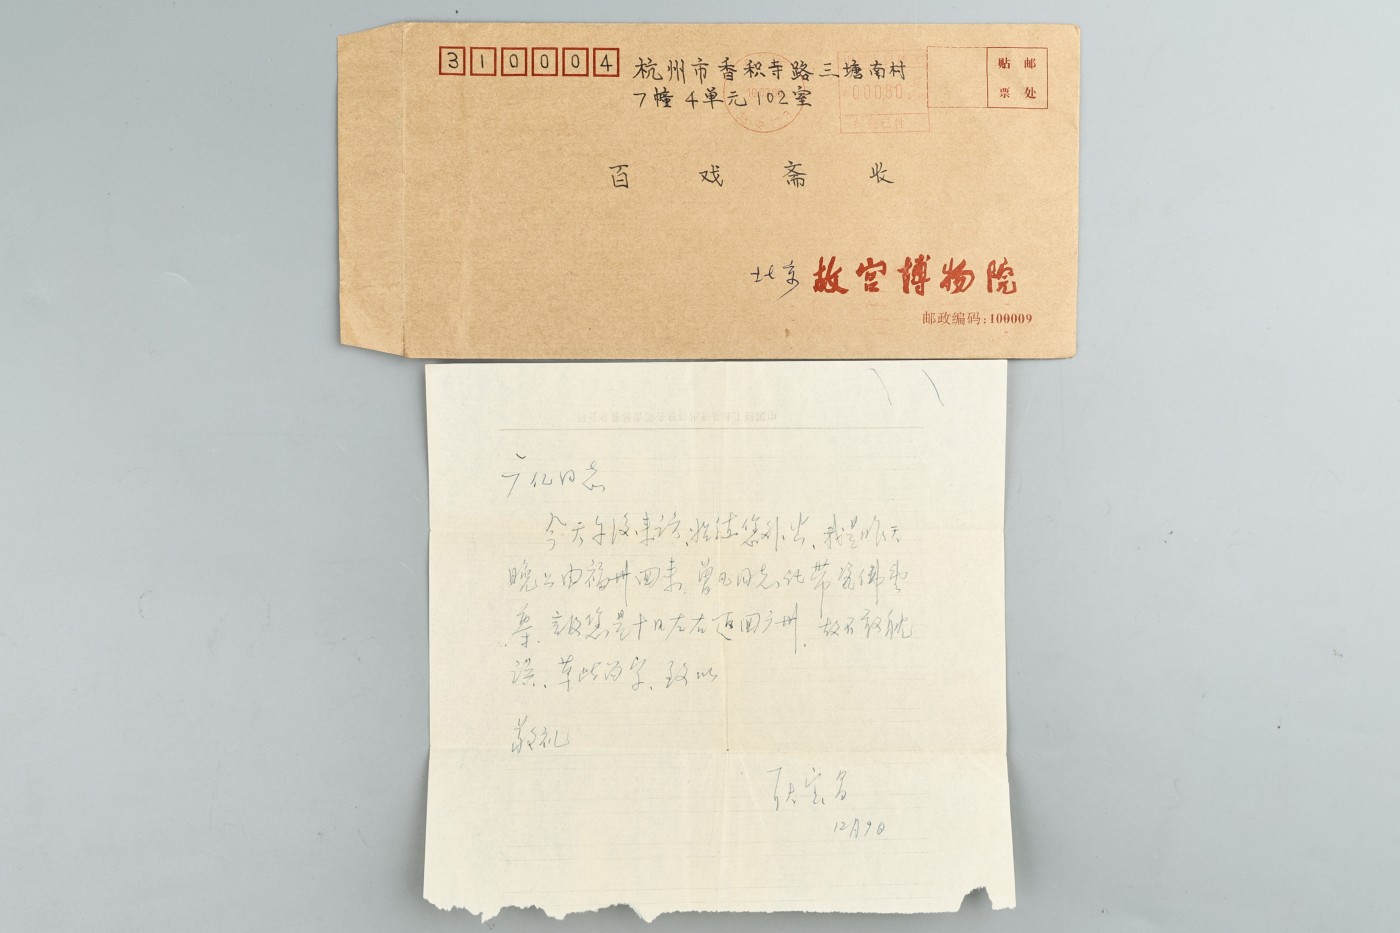 310004
杭州市香积寺路三塘南村
7幢4单元102室
00080
贴 邮
票 处
百戏斋收
北京 故宫博物院
邮政编码:100009
广仁同志
今天午后来访,您外出,我是昨天
晚上由福州回来,曾凡同志托带
是十日左右返回广州,故不敢耽
误,草此留字,致以
敬礼
耿宝昌
12月9日